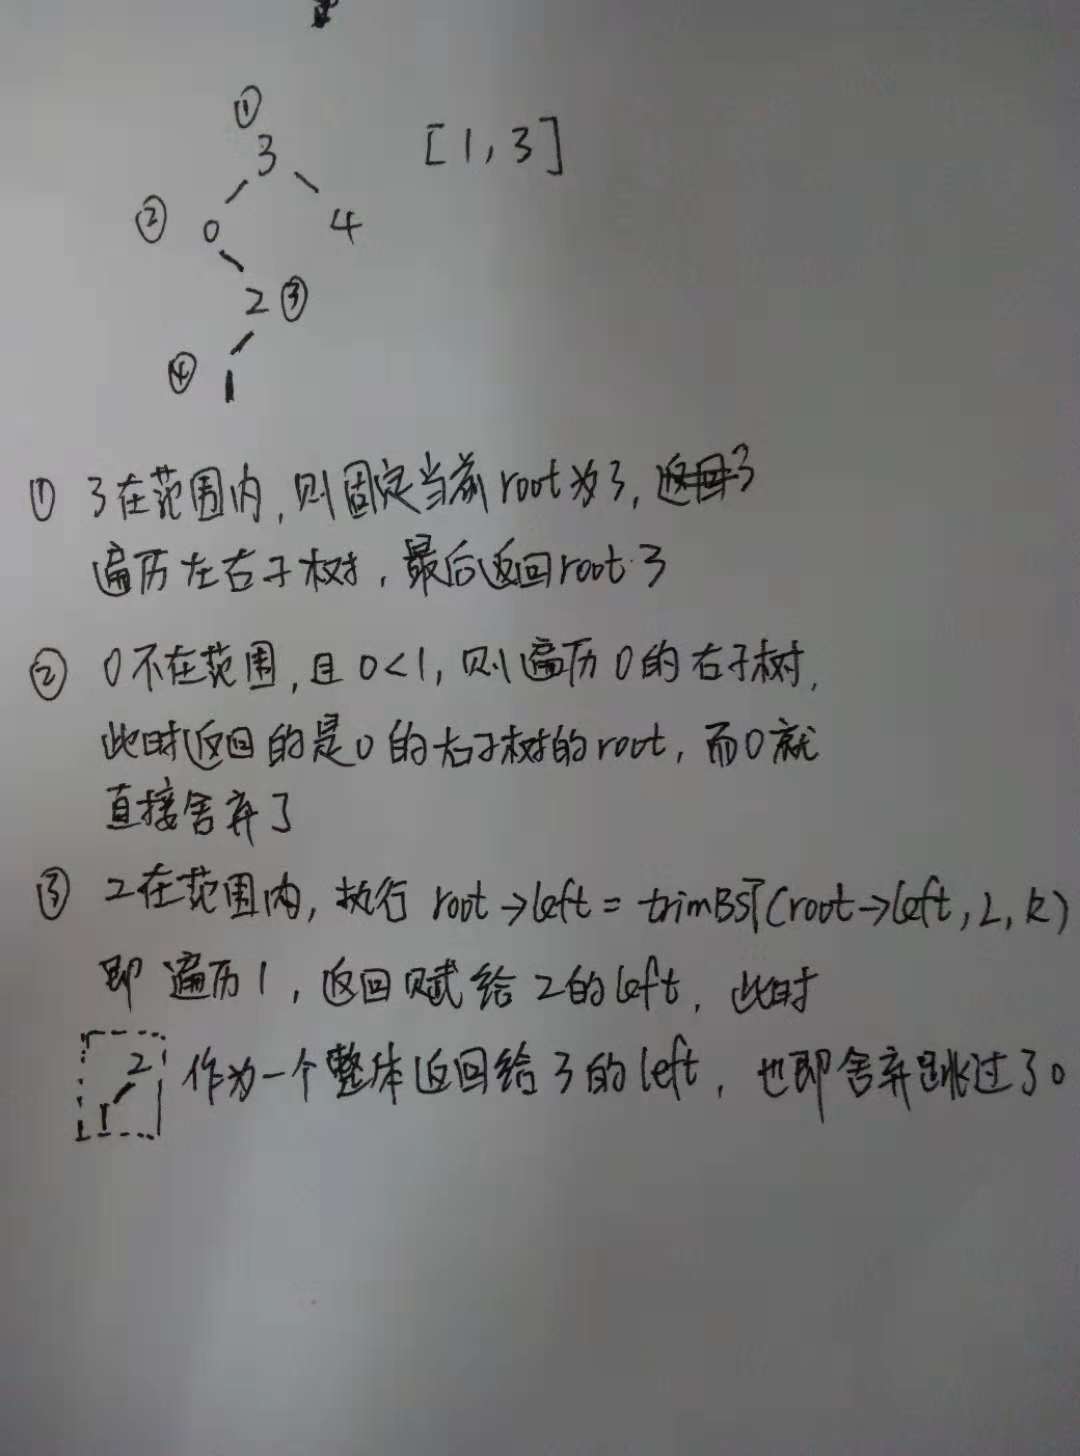 ①
3 [1,3]
② 0 4
2 ③
④ 1
① 3在范围内,则固定当前root为3,返回3
遍历左右子树,最后返回root 3
② 0不在范围,且0<1,则遍历0的右子树,
此时返回的是0的右子树的root,而0就
直接舍弃了
③ 2在范围内,执行 root→left = trimBST(root→left, L, R)
即 遍历1,返回赋给2的left,此时
2 作为一个整体返回给3的left,也即舍弃跳过了0
1